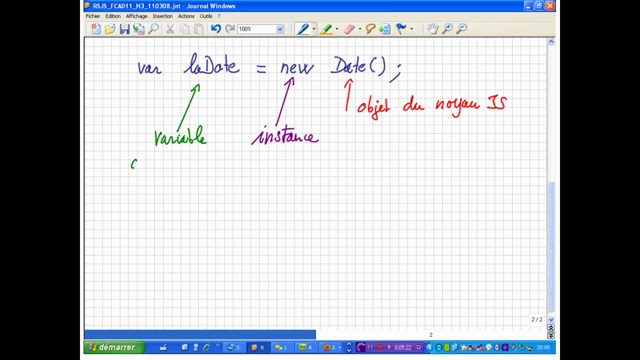 RSJS_FCAD11_N3_110308.jnt - Journal Windows
Fichier Edition Affichage Insertion Actions Outils ?
100%
var laDate = new Date();
objet du noyau JS
variable instance
2/2
2
démarrer
00:05:22
20:05